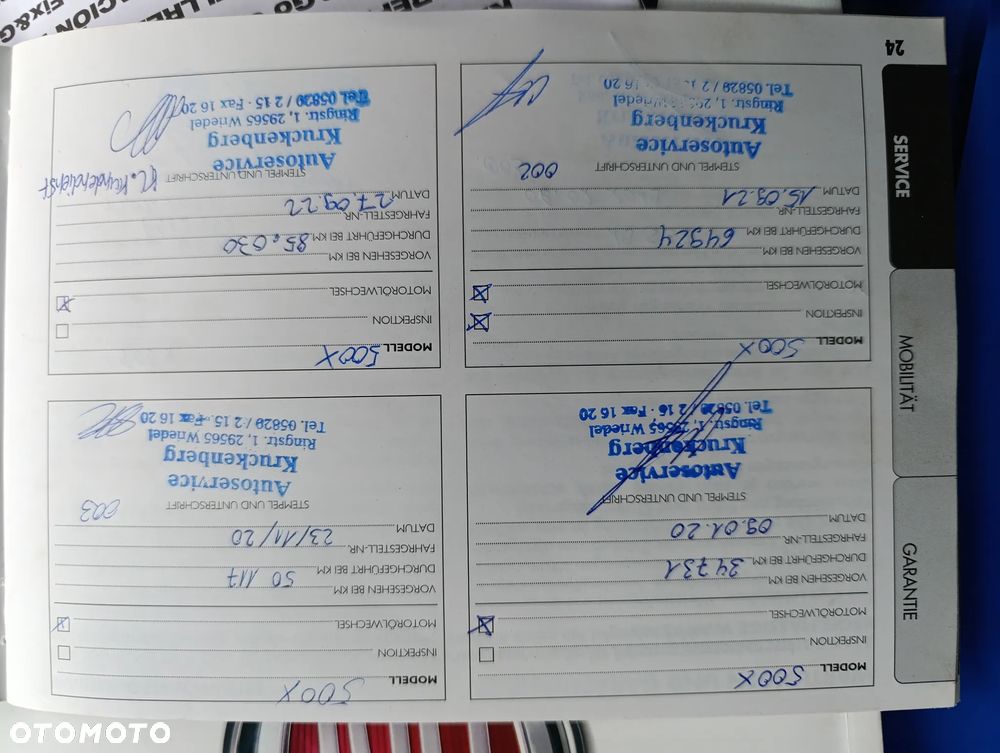 MODELL 500X
INSPEKTION
MOTORÖLWECHSEL
VORGESEHEN BEI KM
DURCHGEFÜHRT BEI KM 34731
FAHRGESTELL-NR.
DATUM 09.01.20
STEMPEL UND UNTERSCHRIFT
Autoservice
Kruckenberg
Ringstr. 1, 29565 Wriedel
Tel. 05829 / 2 15 · Fax 16 20
MODELL 500X
INSPEKTION
MOTORÖLWECHSEL
VORGESEHEN BEI KM
DURCHGEFÜHRT BEI KM 50 117
FAHRGESTELL-NR.
DATUM 23/11/20
STEMPEL UND UNTERSCHRIFT 003
Autoservice
Kruckenberg
Ringstr. 1, 29565 Wriedel
Tel. 05829 / 2 15 · Fax 16 20
MODELL 500X
INSPEKTION
MOTORÖLWECHSEL
VORGESEHEN BEI KM
DURCHGEFÜHRT BEI KM 64924
FAHRGESTELL-NR.
DATUM 15.09.21
STEMPEL UND UNTERSCHRIFT 002
Autoservice
Kruckenberg
Ringstr. 1, 29565 Wriedel
Tel. 05829 / 2 15 · Fax 16 20
MODELL 500X
INSPEKTION
MOTORÖLWECHSEL
VORGESEHEN BEI KM
DURCHGEFÜHRT BEI KM 85.030
FAHRGESTELL-NR.
DATUM 27.09.22
STEMPEL UND UNTERSCHRIFT
Autoservice
Kruckenberg
Ringstr. 1, 29565 Wriedel
Tel. 05829 / 2 15 · Fax 16 20
GARANTIE
MOBILITÄT
SERVICE
24
OTOMOTO